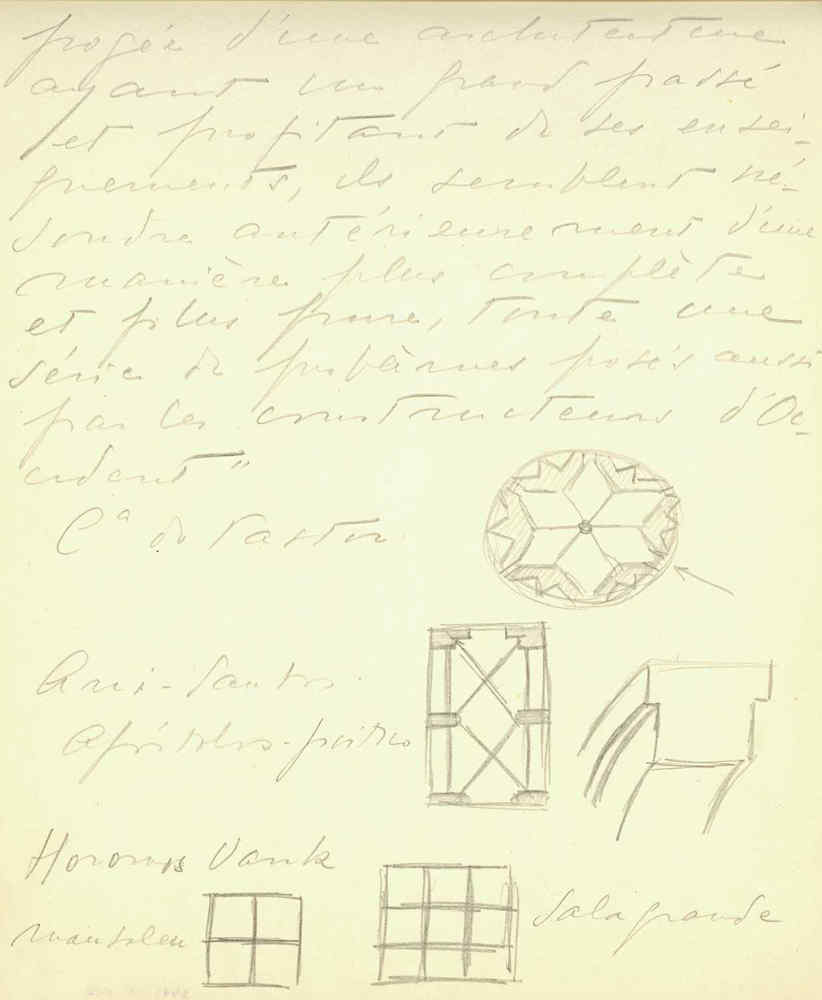 pogée d'une architecture
ayant un grand passé
et profitant de ses ensei-
gnements, ils semblent ré-
soudre antérieurement d'une
manière plus complète
et plus pure, toute une
série de problèmes posés aussi
par les constructeurs d'Oc-
cident"
Cª do Pastor
Ani - Santos
Apóstolos - pórtico
Horomos Vank
mausoleu
Sala grande